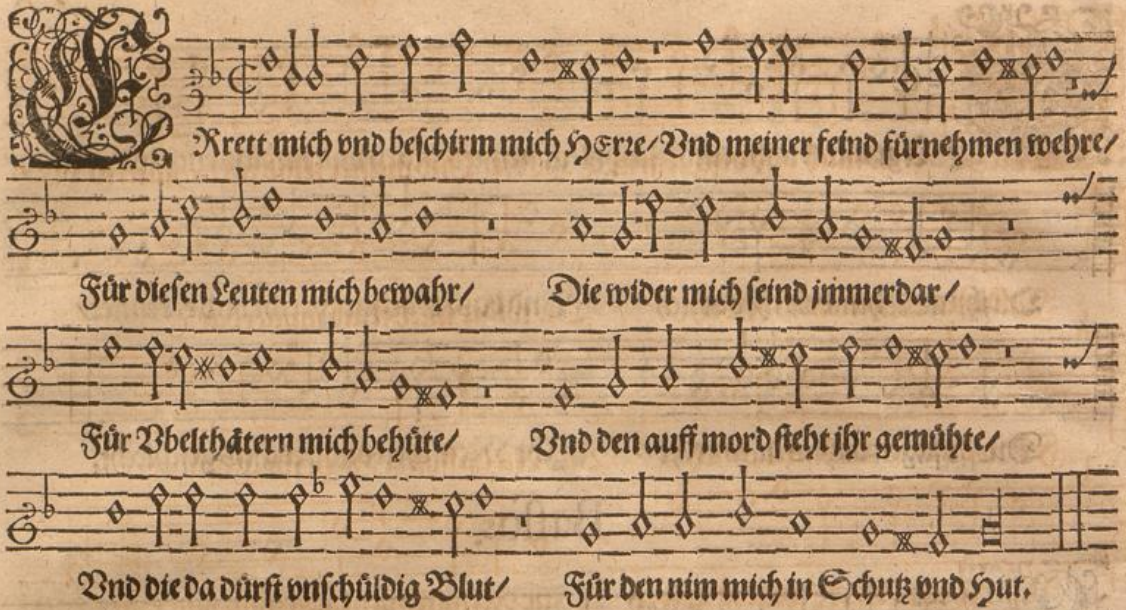 ERrett mich vnd beschirm mich HErre/ Vnd meiner feind fürnehmen wehre/
Für diesen Leuten mich bewahr/ Die wider mich seind jmmerdar/
Für Vbelthätern mich behüte/ Vnd den auff mord steht jhr gemühte/
Vnd die da dürst vnschüldig Blut/ Für den nim mich in Schutz vnd Hut.